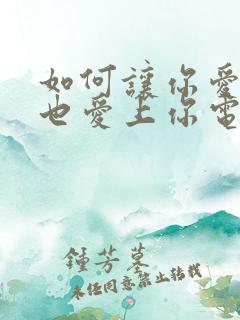 如何讓你愛
也愛上你電
鍾芳墓
未任同意禁止轉載